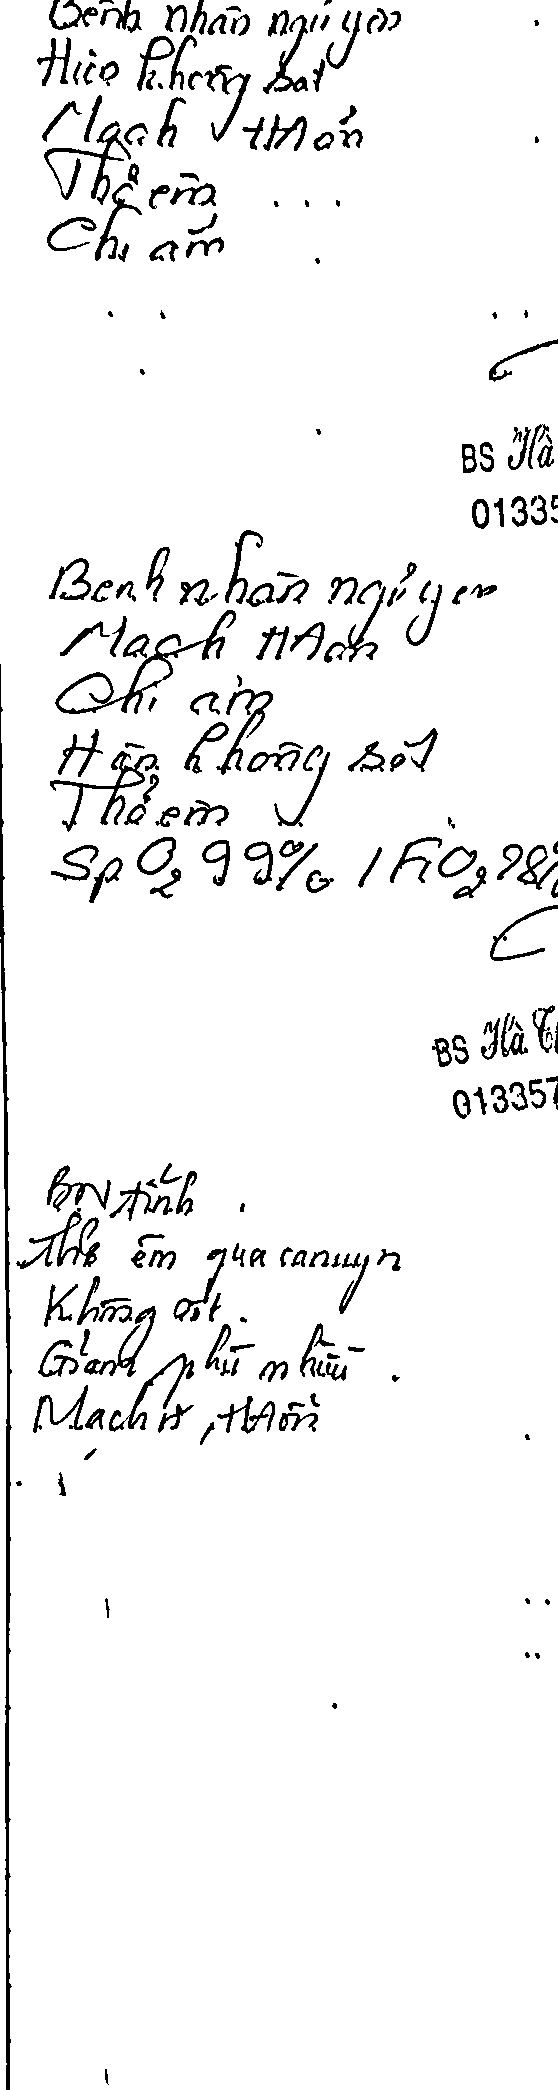 Bệnh nhân ngủ yên
Hiện không sốt
Mạch HA ổn
Thở êm
Chi ấm
BS Hà
01335
Bệnh nhân ngủ yên
Mạch HA ổn
Chi ấm
Hiện không sốt
Thở êm
SpO2 99% / FiO2 28%
BS Hà T
013357
BN tỉnh
Thở êm qua canuyn
Không sốt.
Giảm phù nhiều.
Mạch, HA ổn